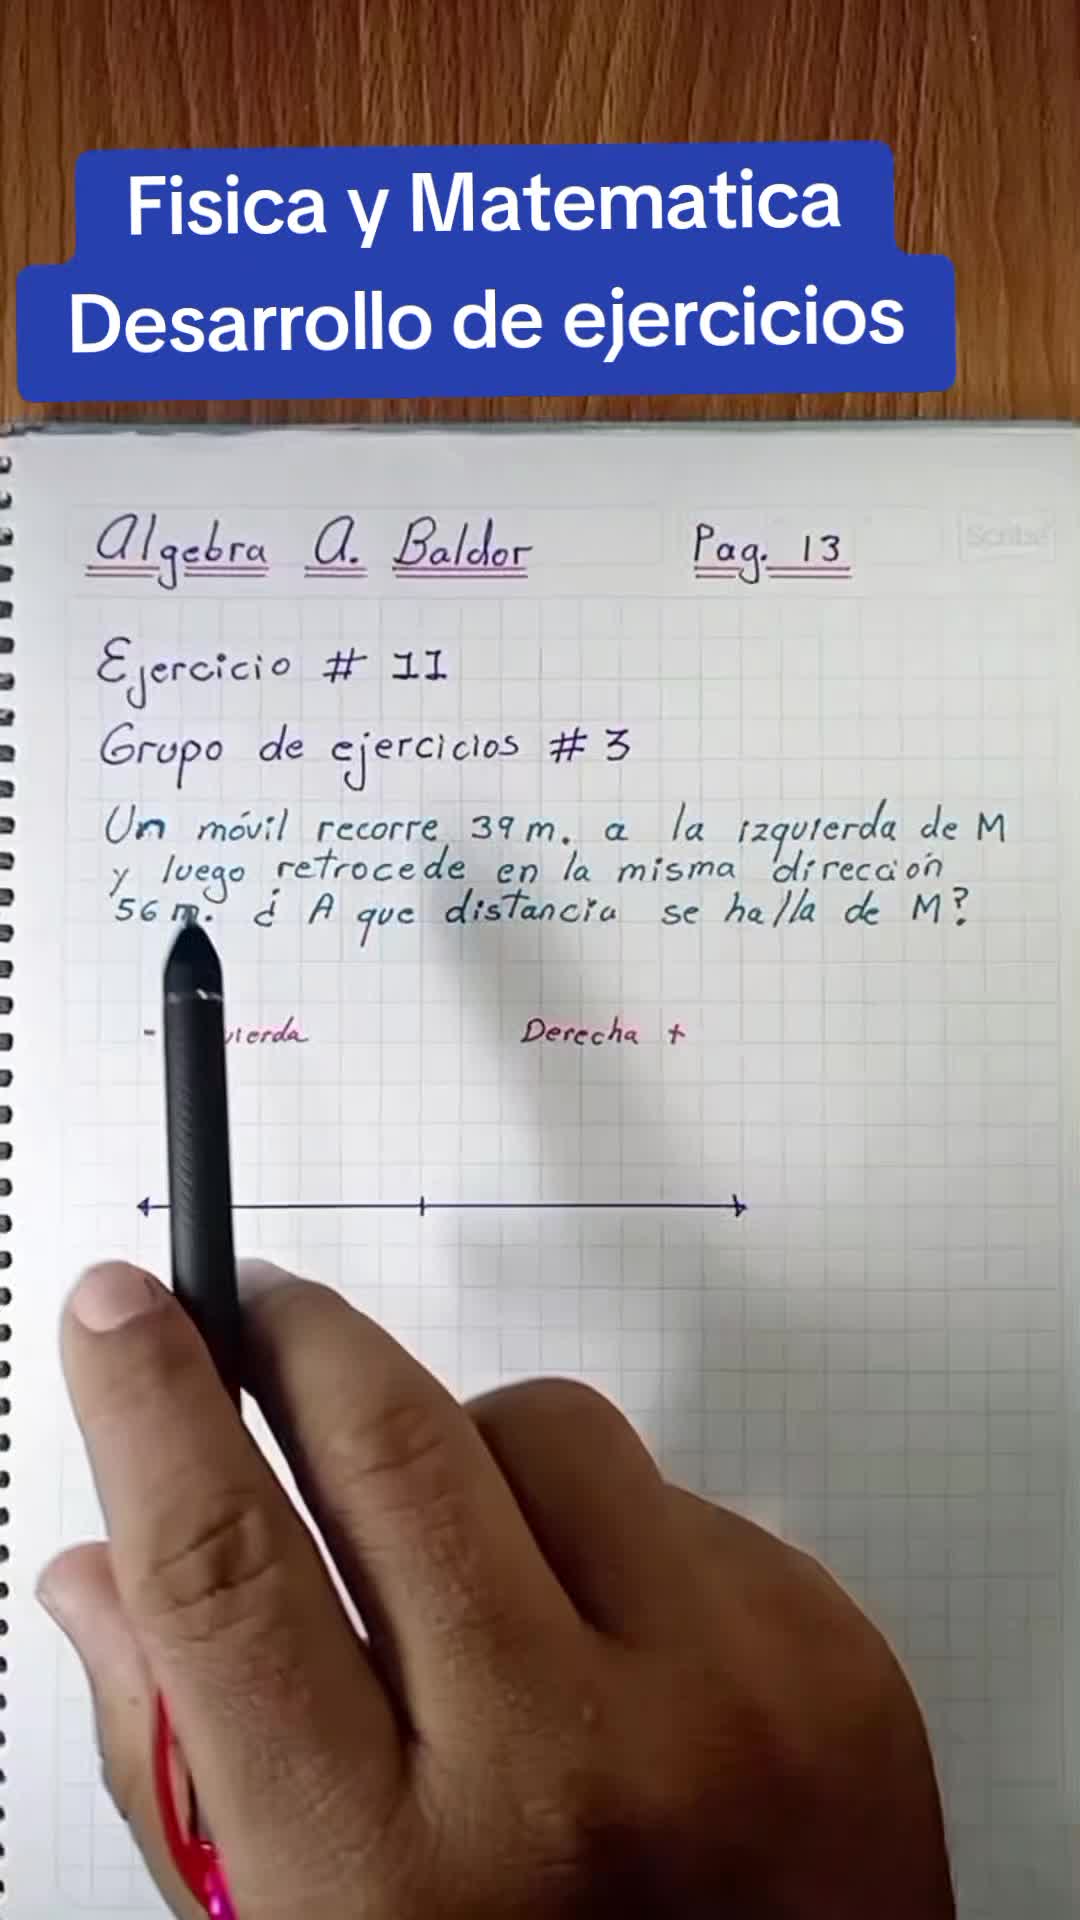 Fisica y Matematica
Desarrollo de ejercicios
Algebra A. Baldor Pag. 13
Scribe
Ejercicio # 11
Grupo de ejercicios # 3
Un móvil recorre 39 m. a la izquierda de M
y luego retrocede en la misma dirección
56 m. ¿ A que distancia se halla de M?
- Derecha +